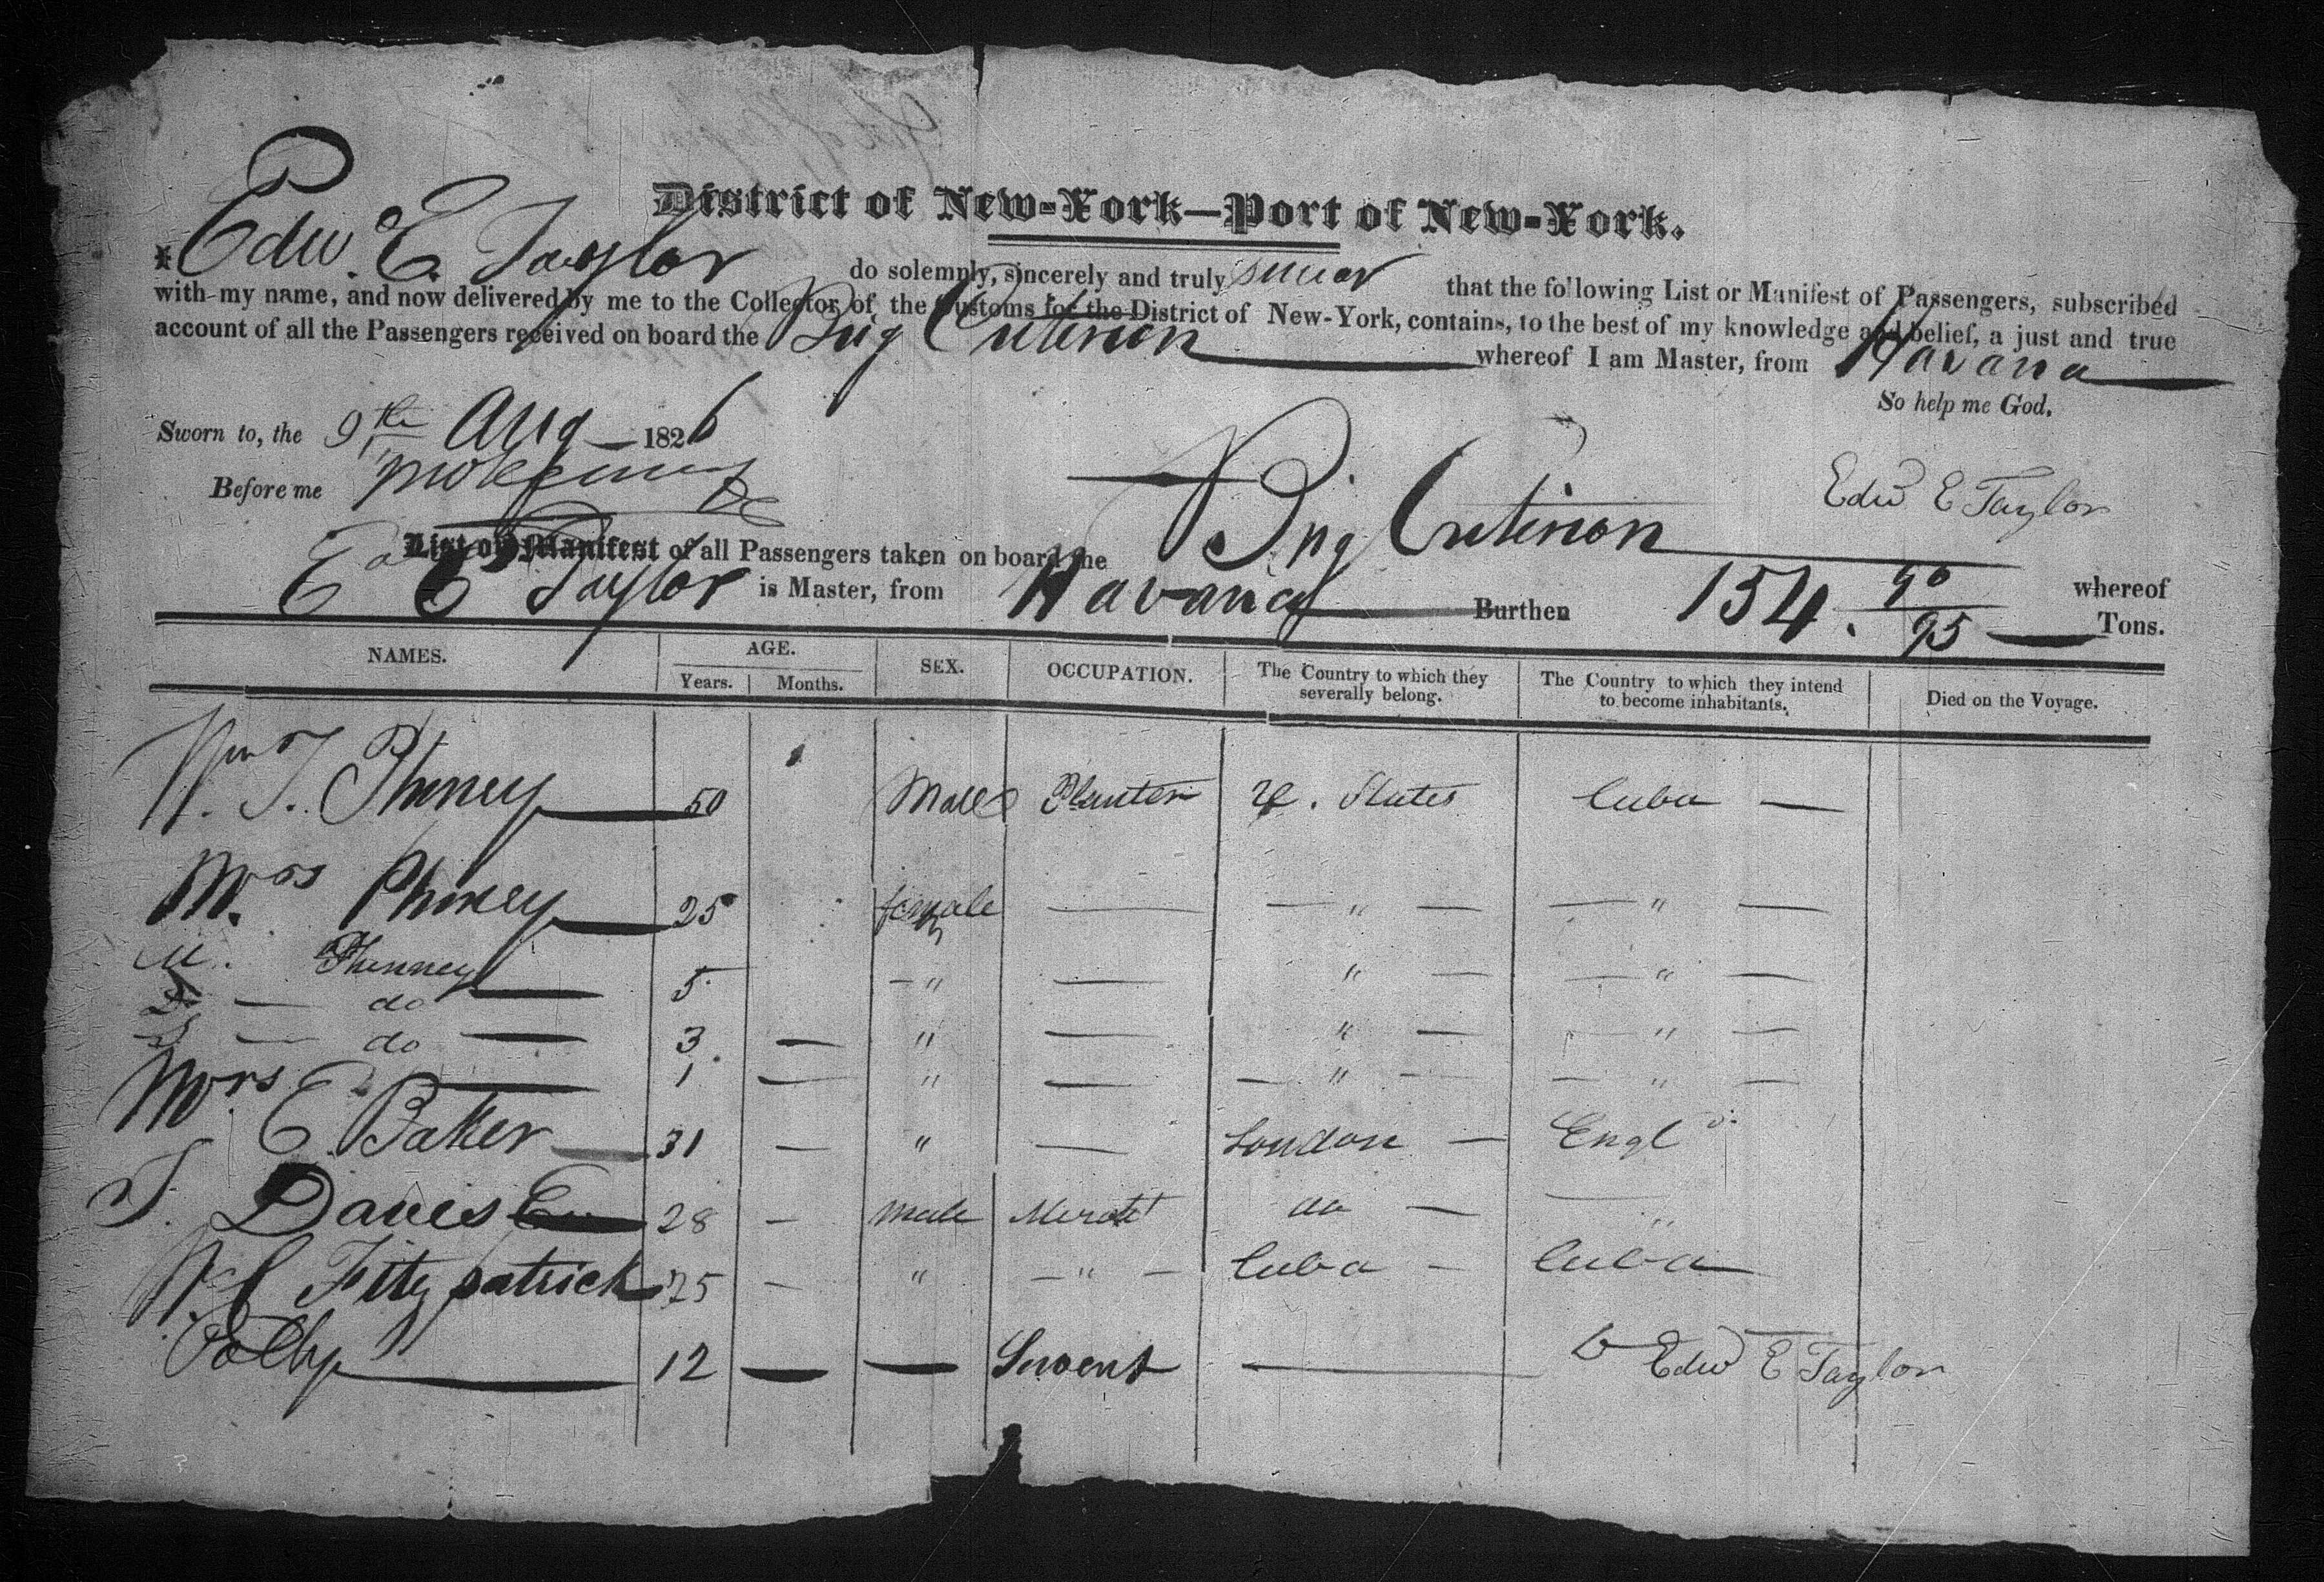 District of New-York—Port of New-York.
I Edw. E. Taylor do solemnly, sincerely and truly swear that the following List or Manifest of Passengers, subscribed
with my name, and now delivered by me to the Collector of the Customs for the District of New-York, contains, to the best of my knowledge and belief, a just and true
account of all the Passengers received on board the Brig Criterion whereof I am Master, from Havana
So help me God.
Sworn to, the 9th Aug 1826
Before me
Edw E Taylor
List or Manifest of all Passengers taken on board the Brig Criterion whereof
E E Taylor is Master, from Havana Burthen 154. 90/95 Tons.
NAMES. AGE. Years. Months. SEX. OCCUPATION. The Country to which they severally belong. The Country to which they intend to become inhabitants. Died on the Voyage.
Wm T. Phiney 50 Male Planter U. States Cuba —
Mrs Phiney 25 female — — " — — " —
M. Phinney 5 — " — " — — " —
— do — 3 — " — " — — " —
— do — 1 — " — — " — — " —
Mrs E. Baker 31 — " — London — Engld.
T. Davis 28 — male Mercht do — "
Fitzpatrick 25 — " — " — Cuba — Cuba
Polly 12 — — Servent —
Edw E Taylor